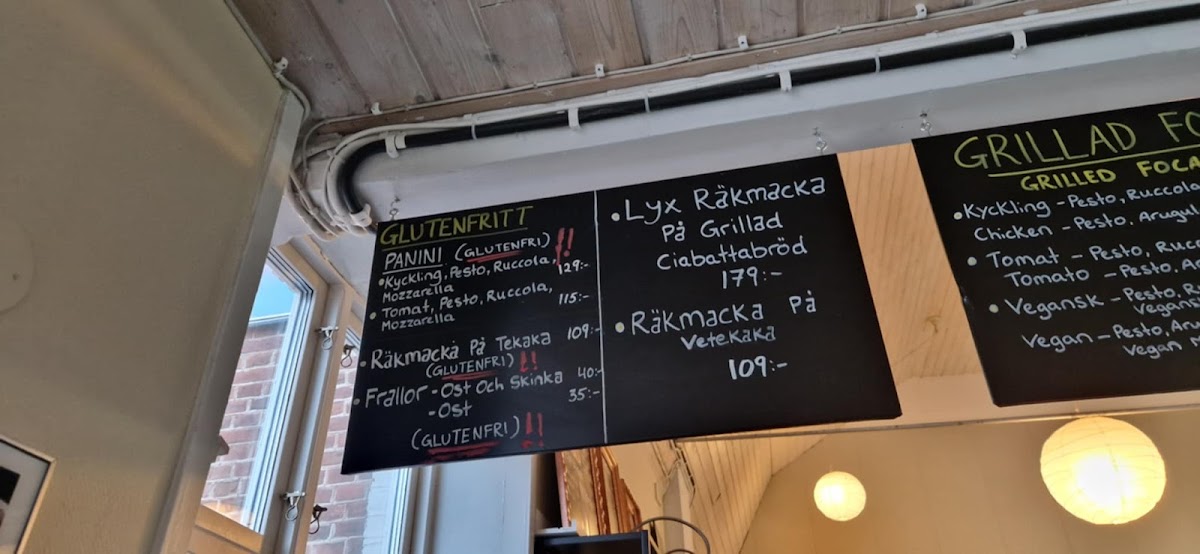 GLUTENFRITT
PANINI (GLUTENFRI) !!
• Kyckling, Pesto, Ruccola,
Mozzarella 129:-
• Tomat, Pesto, Ruccola,
Mozzarella 115:-
• Räkmacka på Tekaka 109:-
(GLUTENFRI) !!
• Frallor - Ost och Skinka 40:-
- Ost 35:-
(GLUTENFRI) !!
• Lyx Räkmacka
på Grillad
Ciabattabröd
179:-
• Räkmacka på
Vetekaka
109:-
GRILLAD FO
GRILLED FOCA
• Kyckling - Pesto, Ruccola
Chicken - Pesto, Arugu
• Tomat - Pesto, Ruc
Tomato - Pesto, A
• Vegansk - Pesto, R
Vegansk
Vegan - Pesto, Aru
Vegan M